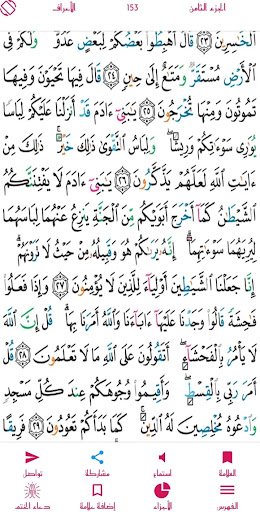 الجزء الثامن 153 الأعراف
الْخَٰسِرِينَ ٢٣ قَالَ اهْبِطُوا۟ بَعْضُكُمْ لِبَعْضٍ عَدُوٌّ وَلَكُمْ فِى
الْأَرْضِ مُسْتَقَرٌّ وَمَتَٰعٌ إِلَىٰ حِينٍ ٢٤ قَالَ فِيهَا تَحْيَوْنَ وَفِيهَا
تَمُوتُونَ وَمِنْهَا تُخْرَجُونَ ٢٥ يَٰبَنِىٓ ءَادَمَ قَدْ أَنزَلْنَا عَلَيْكُمْ لِبَاسًا
يُوَٰرِى سَوْءَٰتِكُمْ وَرِيشًا وَلِبَاسُ التَّقْوَىٰ ذَٰلِكَ خَيْرٌ ذَٰلِكَ مِنْ
ءَايَٰتِ اللَّهِ لَعَلَّهُمْ يَذَّكَّرُونَ ٢٦ يَٰبَنِىٓ ءَادَمَ لَا يَفْتِنَنَّكُمُ
الشَّيْطَٰنُ كَمَآ أَخْرَجَ أَبَوَيْكُم مِّنَ الْجَنَّةِ يَنزِعُ عَنْهُمَا لِبَاسَهُمَا
لِيُرِيَهُمَا سَوْءَٰتِهِمَآ إِنَّهُۥ يَرَىٰكُمْ هُوَ وَقَبِيلُهُۥ مِنْ حَيْثُ لَا تَرَوْنَهُمْ
إِنَّا جَعَلْنَا الشَّيَٰطِينَ أَوْلِيَآءَ لِلَّذِينَ لَا يُؤْمِنُونَ ٢٧ وَإِذَا فَعَلُوا۟
فَٰحِشَةً قَالُوا۟ وَجَدْنَا عَلَيْهَآ ءَابَآءَنَا وَاللَّهُ أَمَرَنَا بِهَا قُلْ إِنَّ اللَّهَ
لَا يَأْمُرُ بِالْفَحْشَآءِ أَتَقُولُونَ عَلَى اللَّهِ مَا لَا تَعْلَمُونَ ٢٨ قُلْ
أَمَرَ رَبِّى بِالْقِسْطِ وَأَقِيمُوا۟ وُجُوهَكُمْ عِندَ كُلِّ مَسْجِدٍ
وَادْعُوهُ مُخْلِصِينَ لَهُ الدِّينَ كَمَا بَدَأَكُمْ تَعُودُونَ ٢٩ فَرِيقًا
العلامة استماع مشاركة تواصل
الفهرس الأجزاء إضافة علامة دعاء الختم